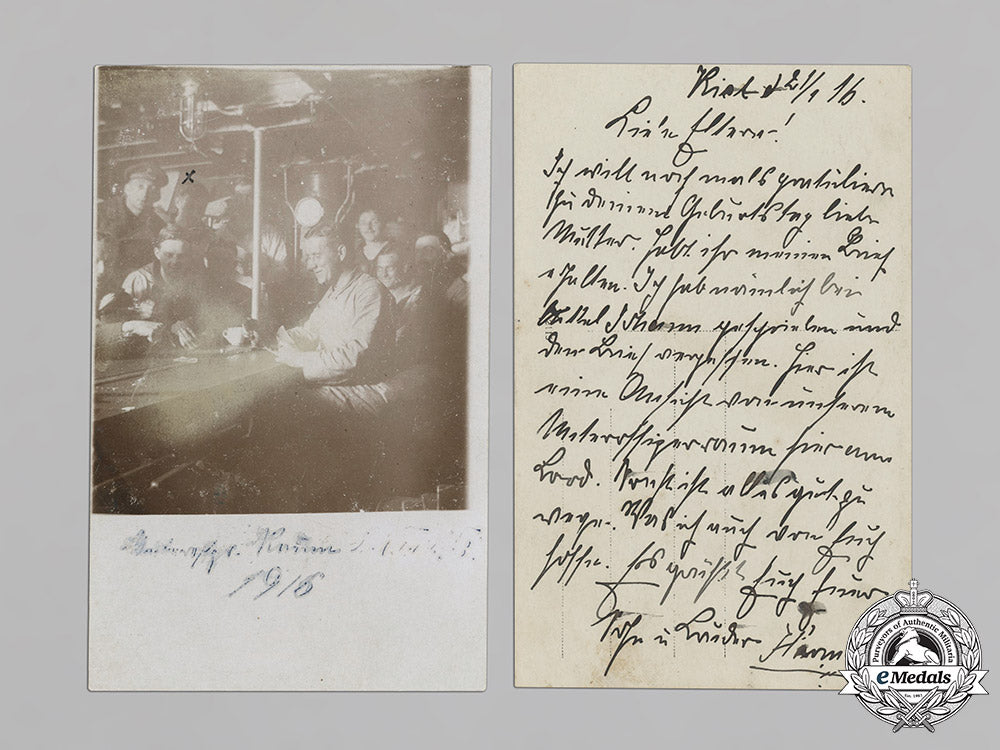 x
Raum
1916
Kiel d 21/1 16.
Lieb'n Eltern!
Ich will noch mals gratulieren
zu deinem Geburtstag liebe
Mutter. Habt ihr meinen Brief
erhalten. Ich hab nämlich bei
Onkel geschrieben und
den Brief vergessen. Hier ist
eine Ansicht von unserem
Unteroffizerraum hier am
Bord. Sonst ist alles gut zu
wege. Was ich auch von Euch
hoffe. Es grüßt Euch Euer
Sohn u Bruder
Purveyors of Authentic Militaria
eMedals